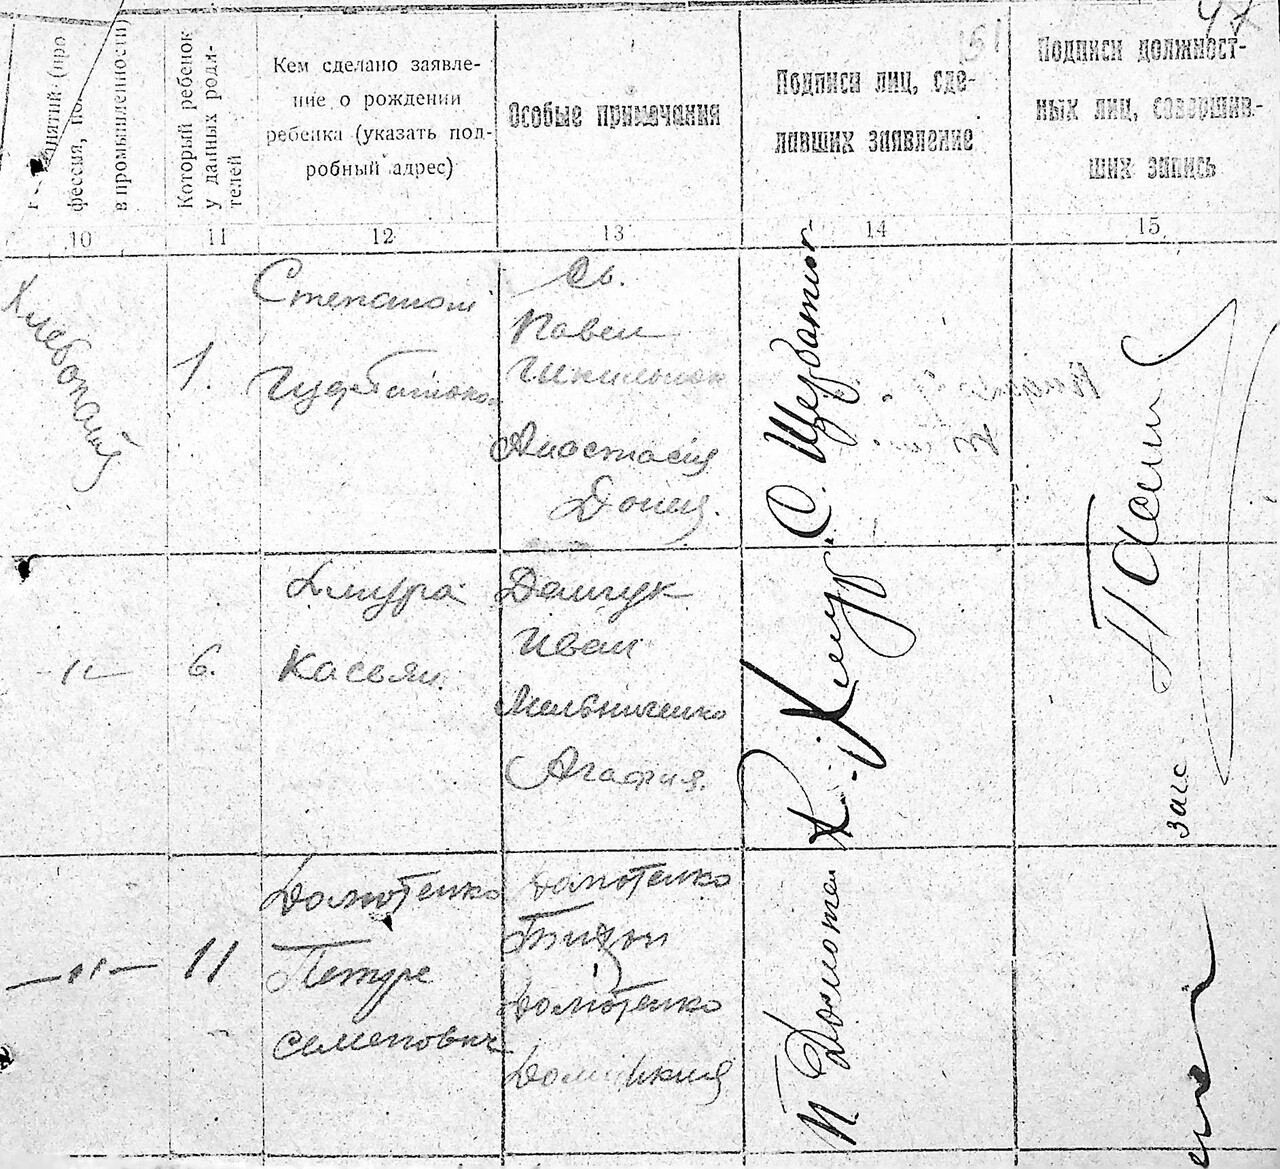 47
151
нятий (про
фессия, по
в промышленности)
Который ребенок
у данных роди-
телей
Кем сделано заявле-
ние о рождении
ребенка (указать под-
робный адрес)
Особые примечания
Подписи лиц, сде-
лавших заявление
Подписи должност-
ных лиц, совершив-
ших запись
10
11
12
13
14
15
Хлебопаш
1.
Степаном
Св.
Павел
Анастасия
Донец.
С. Щербатюк
6.
Кмура
Касьян.
Демчук
Иван
Мельниченко
Агафия.
К. Кмура
загс
—11—
11
Домотенко
Петре
Семенович
Домотенко
Тихон
Домотенко
Домникия
П. Домотен